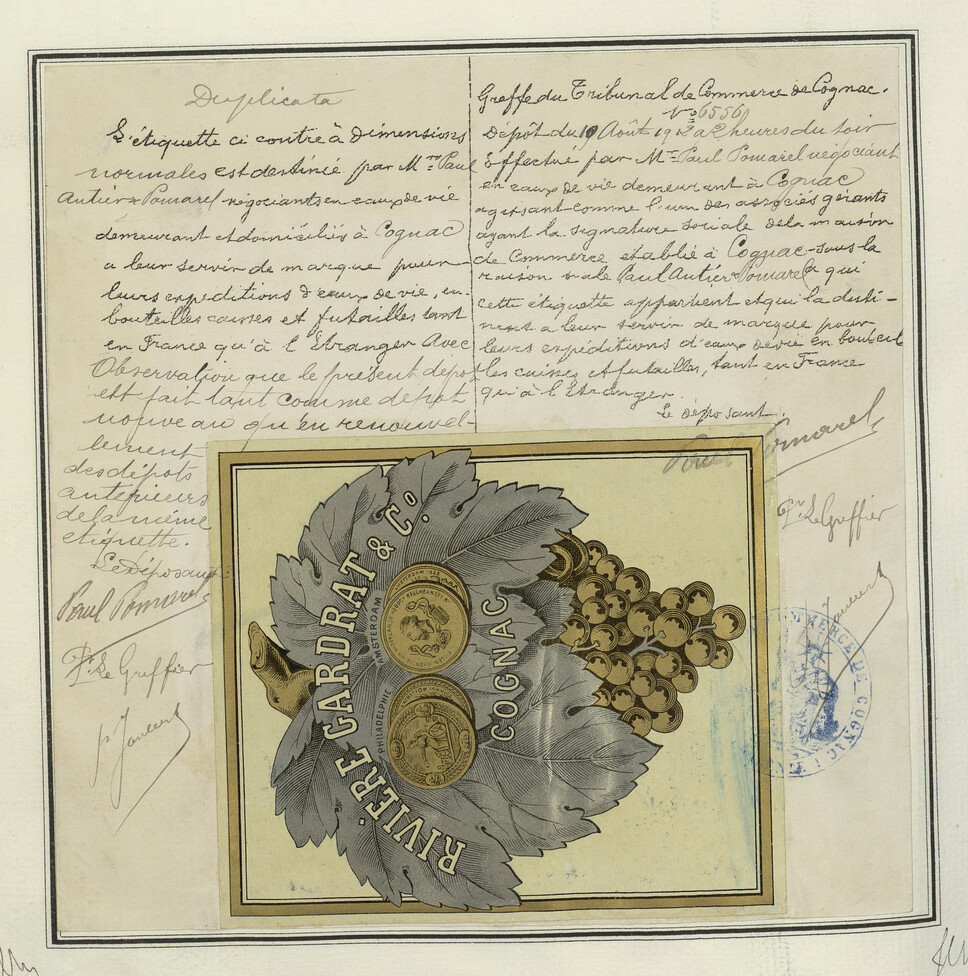 Duplicata
L'étiquette ci contre à dimensions
normales est destinée par Mrs Paul
Antier & Pomarel négociants en eaux de vie
demeurant et domiciliés à Cognac
a leur servir de marque pour
leurs expéditions d'eaux de vie, en
bouteilles caisses et futailles tant
en France qu'à l'Etranger Avec
Observation que le présent dépot
est fait tant comme dépot
nouveau qu'en renouvel-
lement
des dépots
antérieurs
de la même
étiquette.
Le Déposant
Paul Pomarel
Pr Le Greffier
Greffe du Tribunal de Commerce de Cognac.
No 6556
Dépôt du 19 Août 19 à 2 heures du soir
Effectué par Mr Paul Pomarel négociant
en eaux de vie demeurant à Cognac
agissant comme l'un des associés gérants
ayant la signature sociale de la maison
de Commerce établie à Cognac sous la
raison sale Paul Antier Pomarel a qui
cette étiquette appartient et qui la desti-
nent a leur servir de marque pour
leurs expéditions d'eaux de vie en bouteil
les caisses et futailles, tant en France
qu'à l'Etranger.
Le déposant.
Paul Pomarel
Pr Le Greffier
RIVIÈRE GARDRAT & Co.
AMSTERDAM
PHILADELPHIE
COGNAC
COMMERCE DE COGNAC